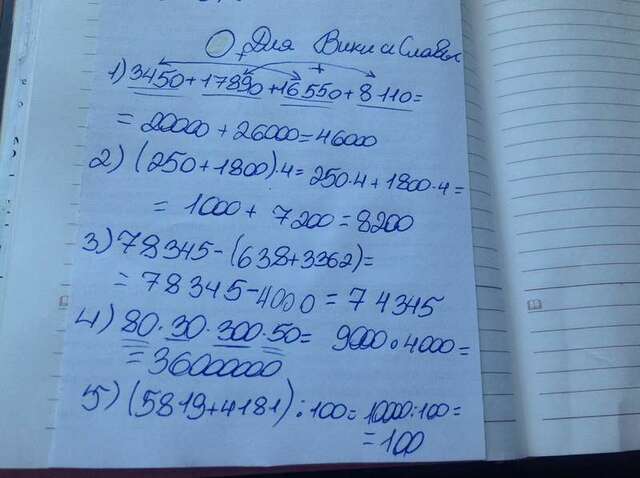 Для Вики и Славы
+
1) 3450+17890+16550+8110=
= 20000 + 26000 = 46000
2) (250+1800)·4= 250·4+1800·4=
= 1000 + 7200 = 8200
3) 78345-(638+3362)=
= 78345-4000 = 74345
4) 80·30·300·50= 9000·4000=
= 3600000
5) (5819+4181):100= 1000:100=
= 100